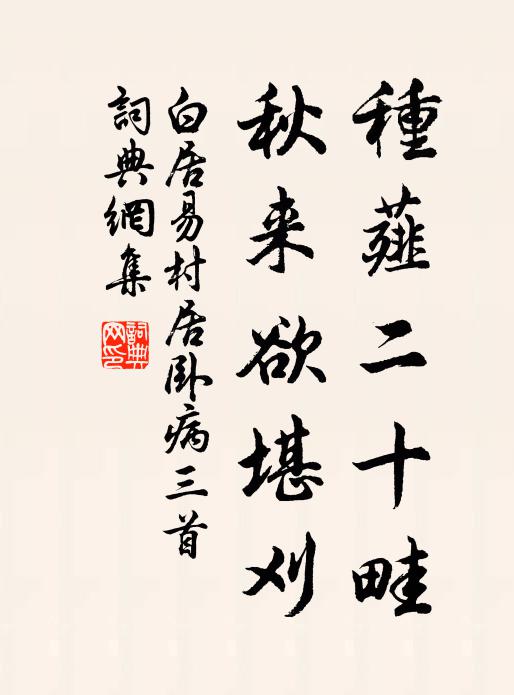 種薤二十畦
秋来欲堪刈
白居易村居卧病三首
詞典網集
詞典網印